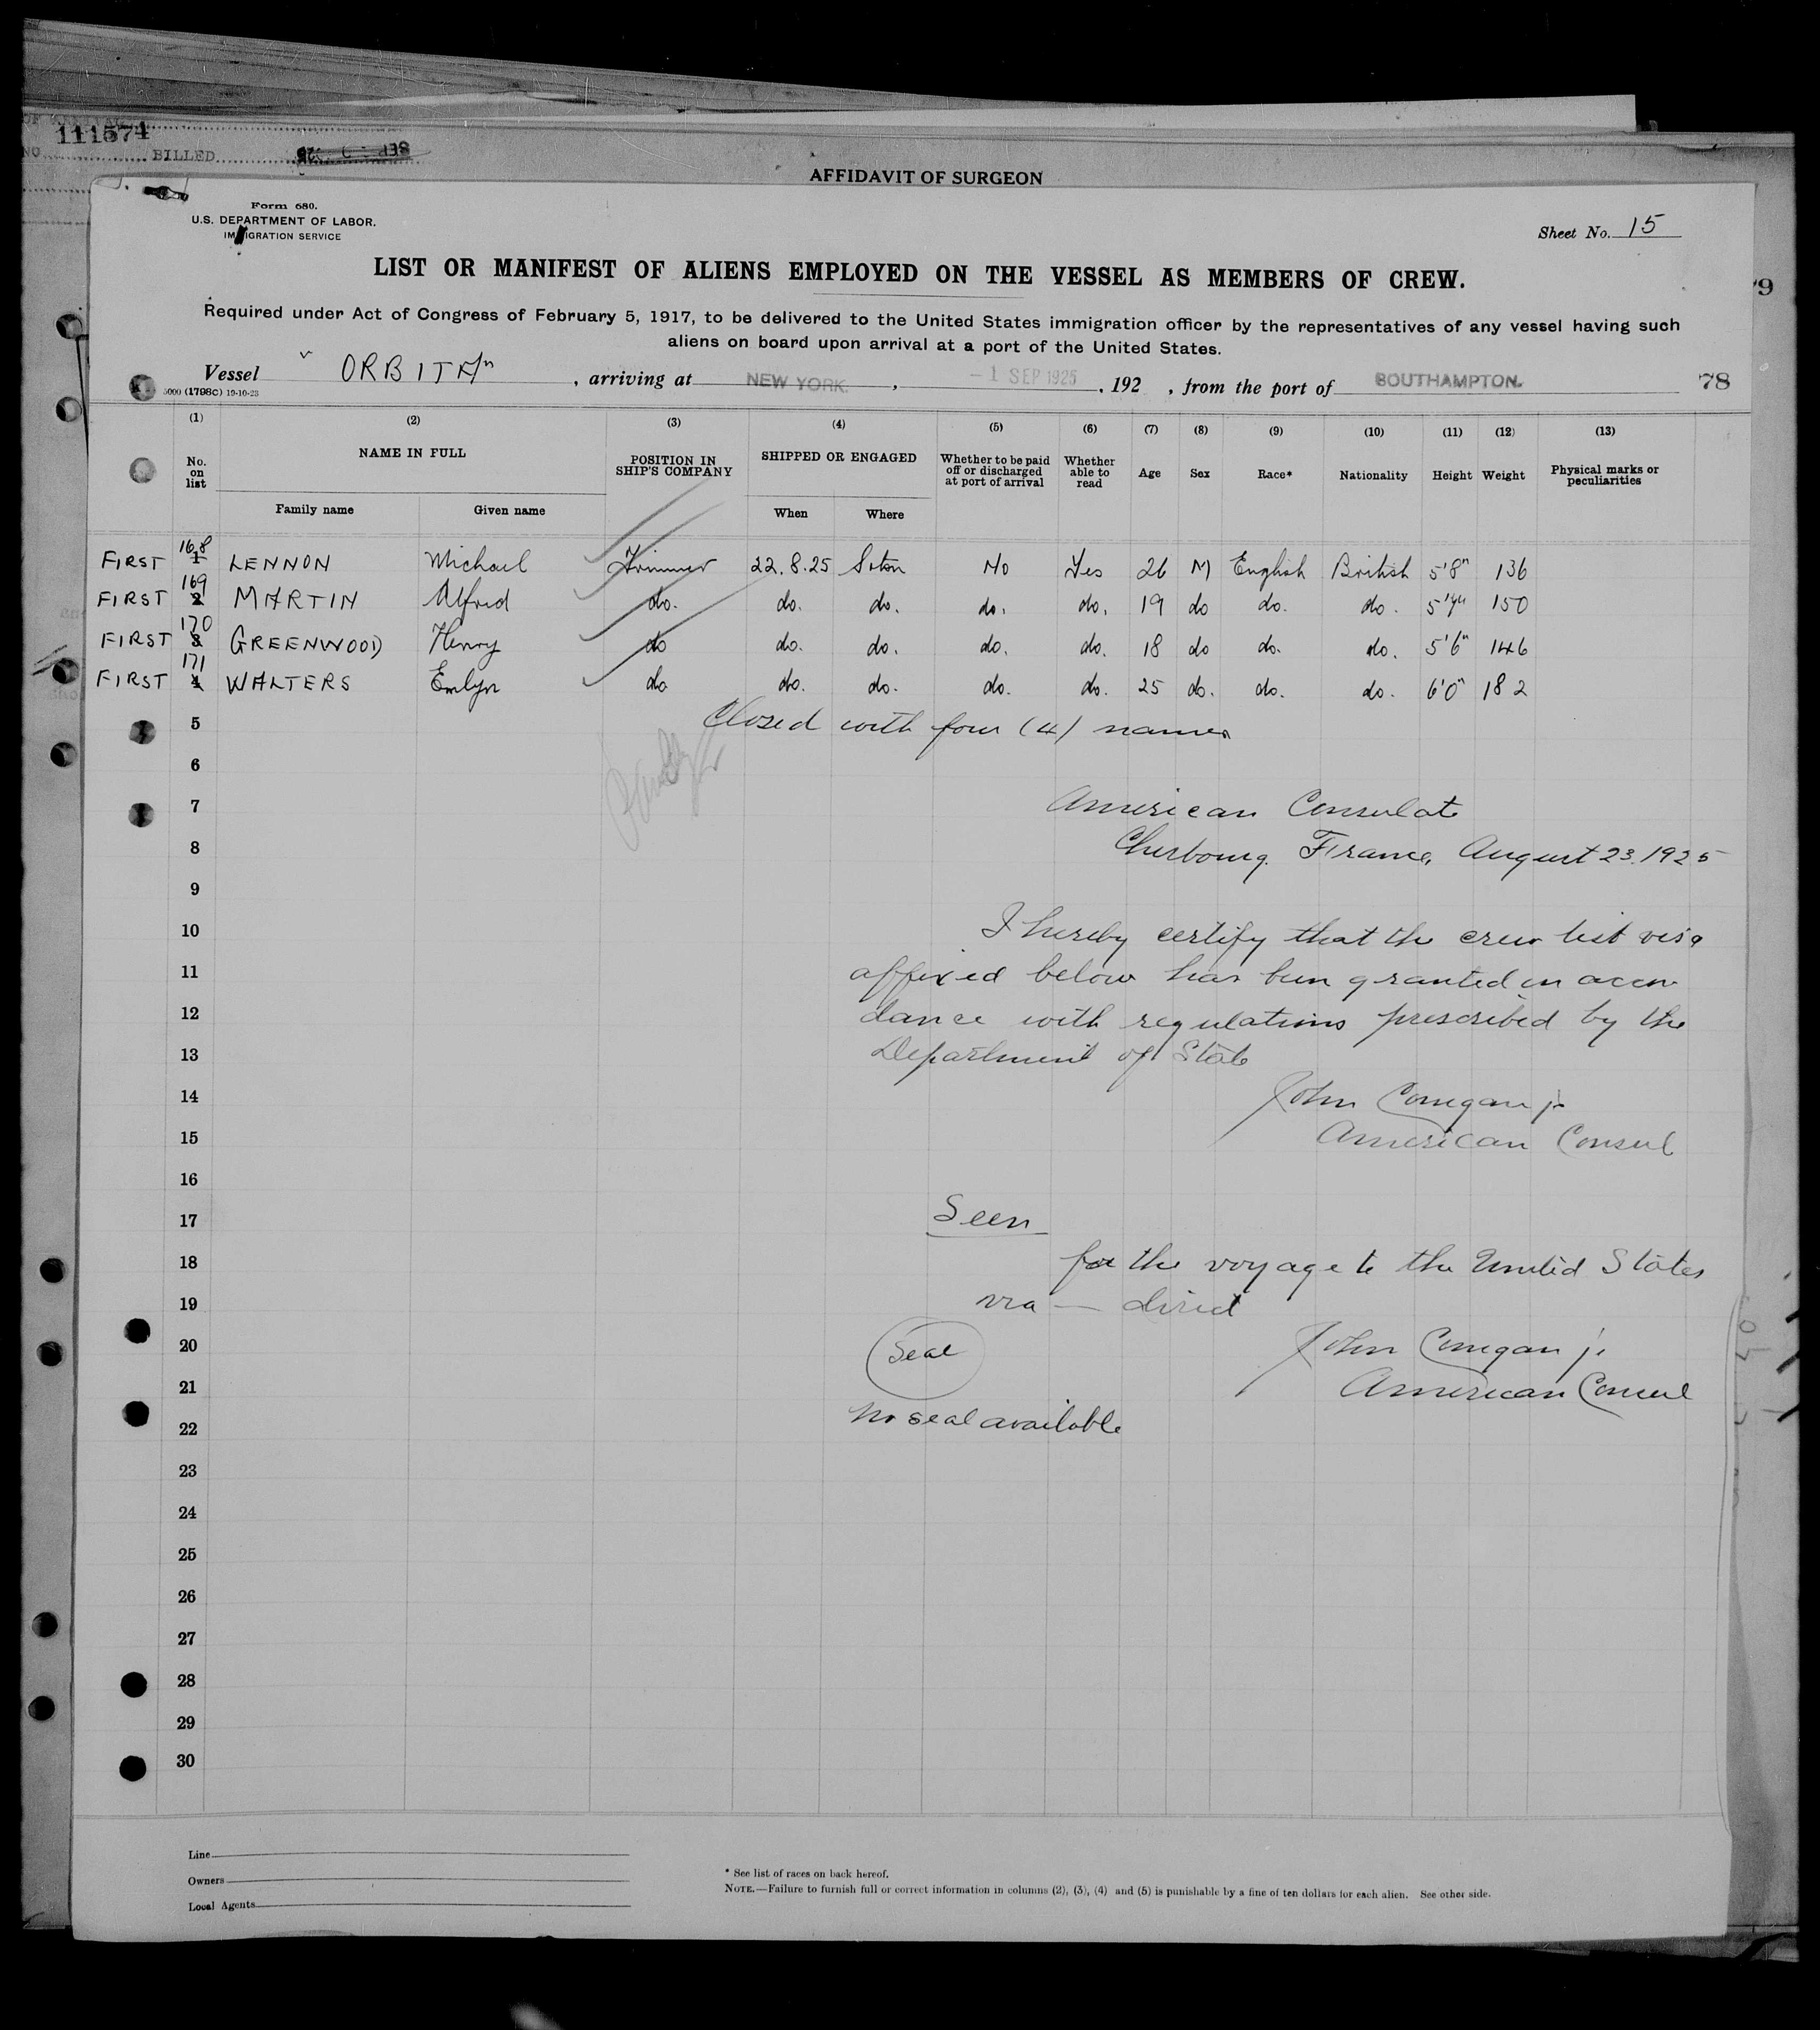 111574
BILLED
AFFIDAVIT OF SURGEON
Form 680.
U.S. DEPARTMENT OF LABOR.
IMMIGRATION SERVICE
Sheet No. 15
LIST OR MANIFEST OF ALIENS EMPLOYED ON THE VESSEL AS MEMBERS OF CREW.
Required under Act of Congress of February 5, 1917, to be delivered to the United States immigration officer by the representatives of any vessel having such
aliens on board upon arrival at a port of the United States.
Vessel "ORBITA", arriving at NEW YORK, - 1 SEP 1925, 192 , from the port of SOUTHAMPTON. 78
5000 (1798C) 19-10-23
(1) (2) (3) (4) (5) (6) (7) (8) (9) (10) (11) (12) (13)
No. on list NAME IN FULL POSITION IN SHIP'S COMPANY SHIPPED OR ENGAGED Whether to be paid off or discharged at port of arrival Whether able to read Age Sex Race* Nationality Height Weight Physical marks or peculiarities
Family name Given name When Where
FIRST 168 1 LENNON Michael Trimmer 22.8.25 Soton No Yes 26 M English British 5'8" 136
FIRST 169 2 MARTIN Alfred do. do. do. do. do. 19 do do. do. 5'7" 150
FIRST 170 3 GREENWOOD Henry do do. do. do. do. 18 do do. do. 5'6" 146
FIRST 171 4 WALTERS Emlyn do do. do. do. do. 25 do. do. do. 6'0" 182
5 Closed with four (4) names
6
7 American Consulate
8 Cherbourg. France, August 23. 1925
9
10 I hereby certify that the crew list visa
11 affixed below has been granted in accor
12 dance with regulations prescribed by the
13 Department of State
14 John Corrigan jr
15 American Consul
16
17 Seen
18 for the voyage to the United States
19 via — direct
20 Seal John Corrigan jr
21 American Consul
22 No seal available
23
24
25
26
27
28
29
30
Line
Owners
Local Agents
* See list of races on back hereof.
NOTE.—Failure to furnish full or correct information in columns (2), (3), (4) and (5) is punishable by a fine of ten dollars for each alien. See other side.